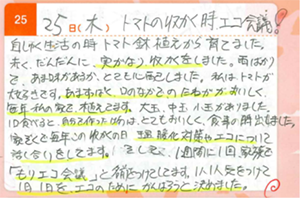 25
25日(木) トマトの収かく時エコ会議!
自しゅく生活の時トマト鉢植えから育てました。
赤く、だんだんに 実がなり 収かくをしました。雨ばかり
で、あまみがあるか、とても しました。私はトマトが
大好きです。あますぎなく、口のなかで がおいしく、
毎年 私の家で 植えてます。大玉、中玉、小玉がありました。
1口食べると、自分で作った は、とてもおいしく、食事の時
家ぞくで毎年この収かくの日 温暖化対策やエコについて
話し合いをしてます。 そして、1週間に1回 家族を
「もりエコ会議」と名をつけてします。1人1人気をつけて
1日1日を、エコのために がんばろうと決めました。